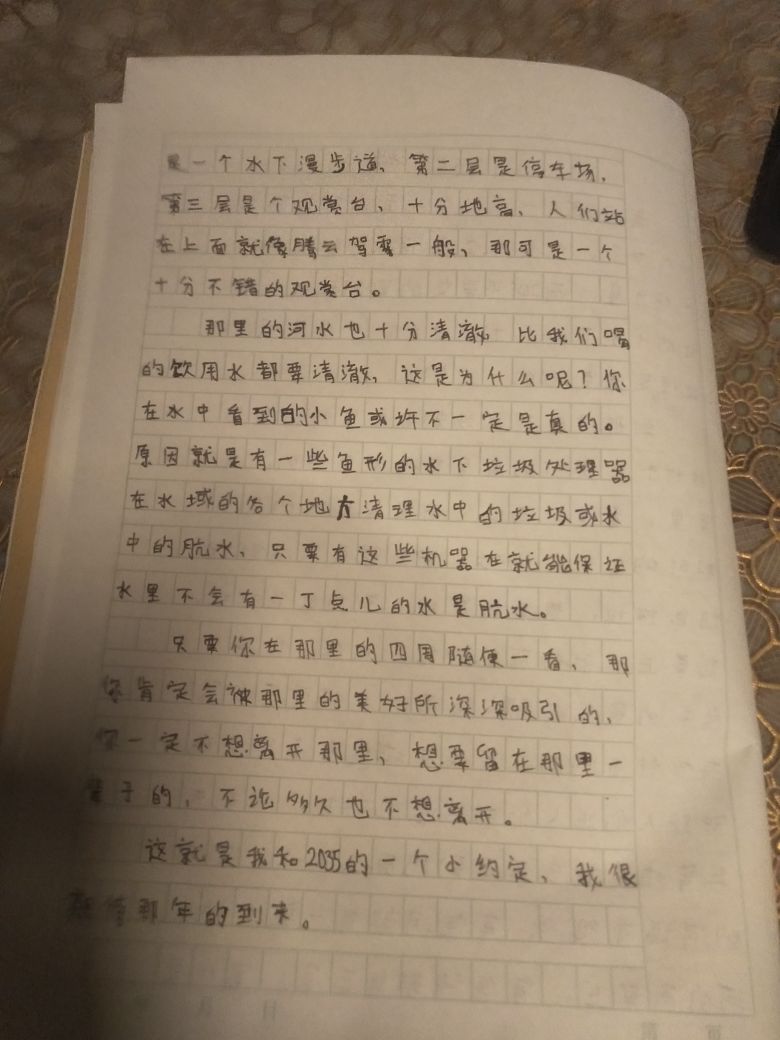 是一个水下漫步道，第二层是停车场，
第三层是个观赏台，十分地高，人们站
在上面就像腾云驾雾一般，那可是一个
十分不错的观赏台。
那里的河水也十分清澈，比我们喝
的饮用水都要清澈，这是为什么呢？你
在水中看到的小鱼或许不一定是真的。
原因就是有一些鱼形的水下垃圾处理器
在水域的各个地方清理水中的垃圾或水
中的肮水，只要有这些机器在就能保证
水里不会有一丁点儿的水是肮水。
只要你在那里的四周随便一看，那
你肯定会被那里的美好所深深吸引的，
你一定不想离开那里，想要留在那里一
辈子的，不论多久也不想离开。
这就是我和2035的一个小约定，我很
期待那年的到来。
月 日